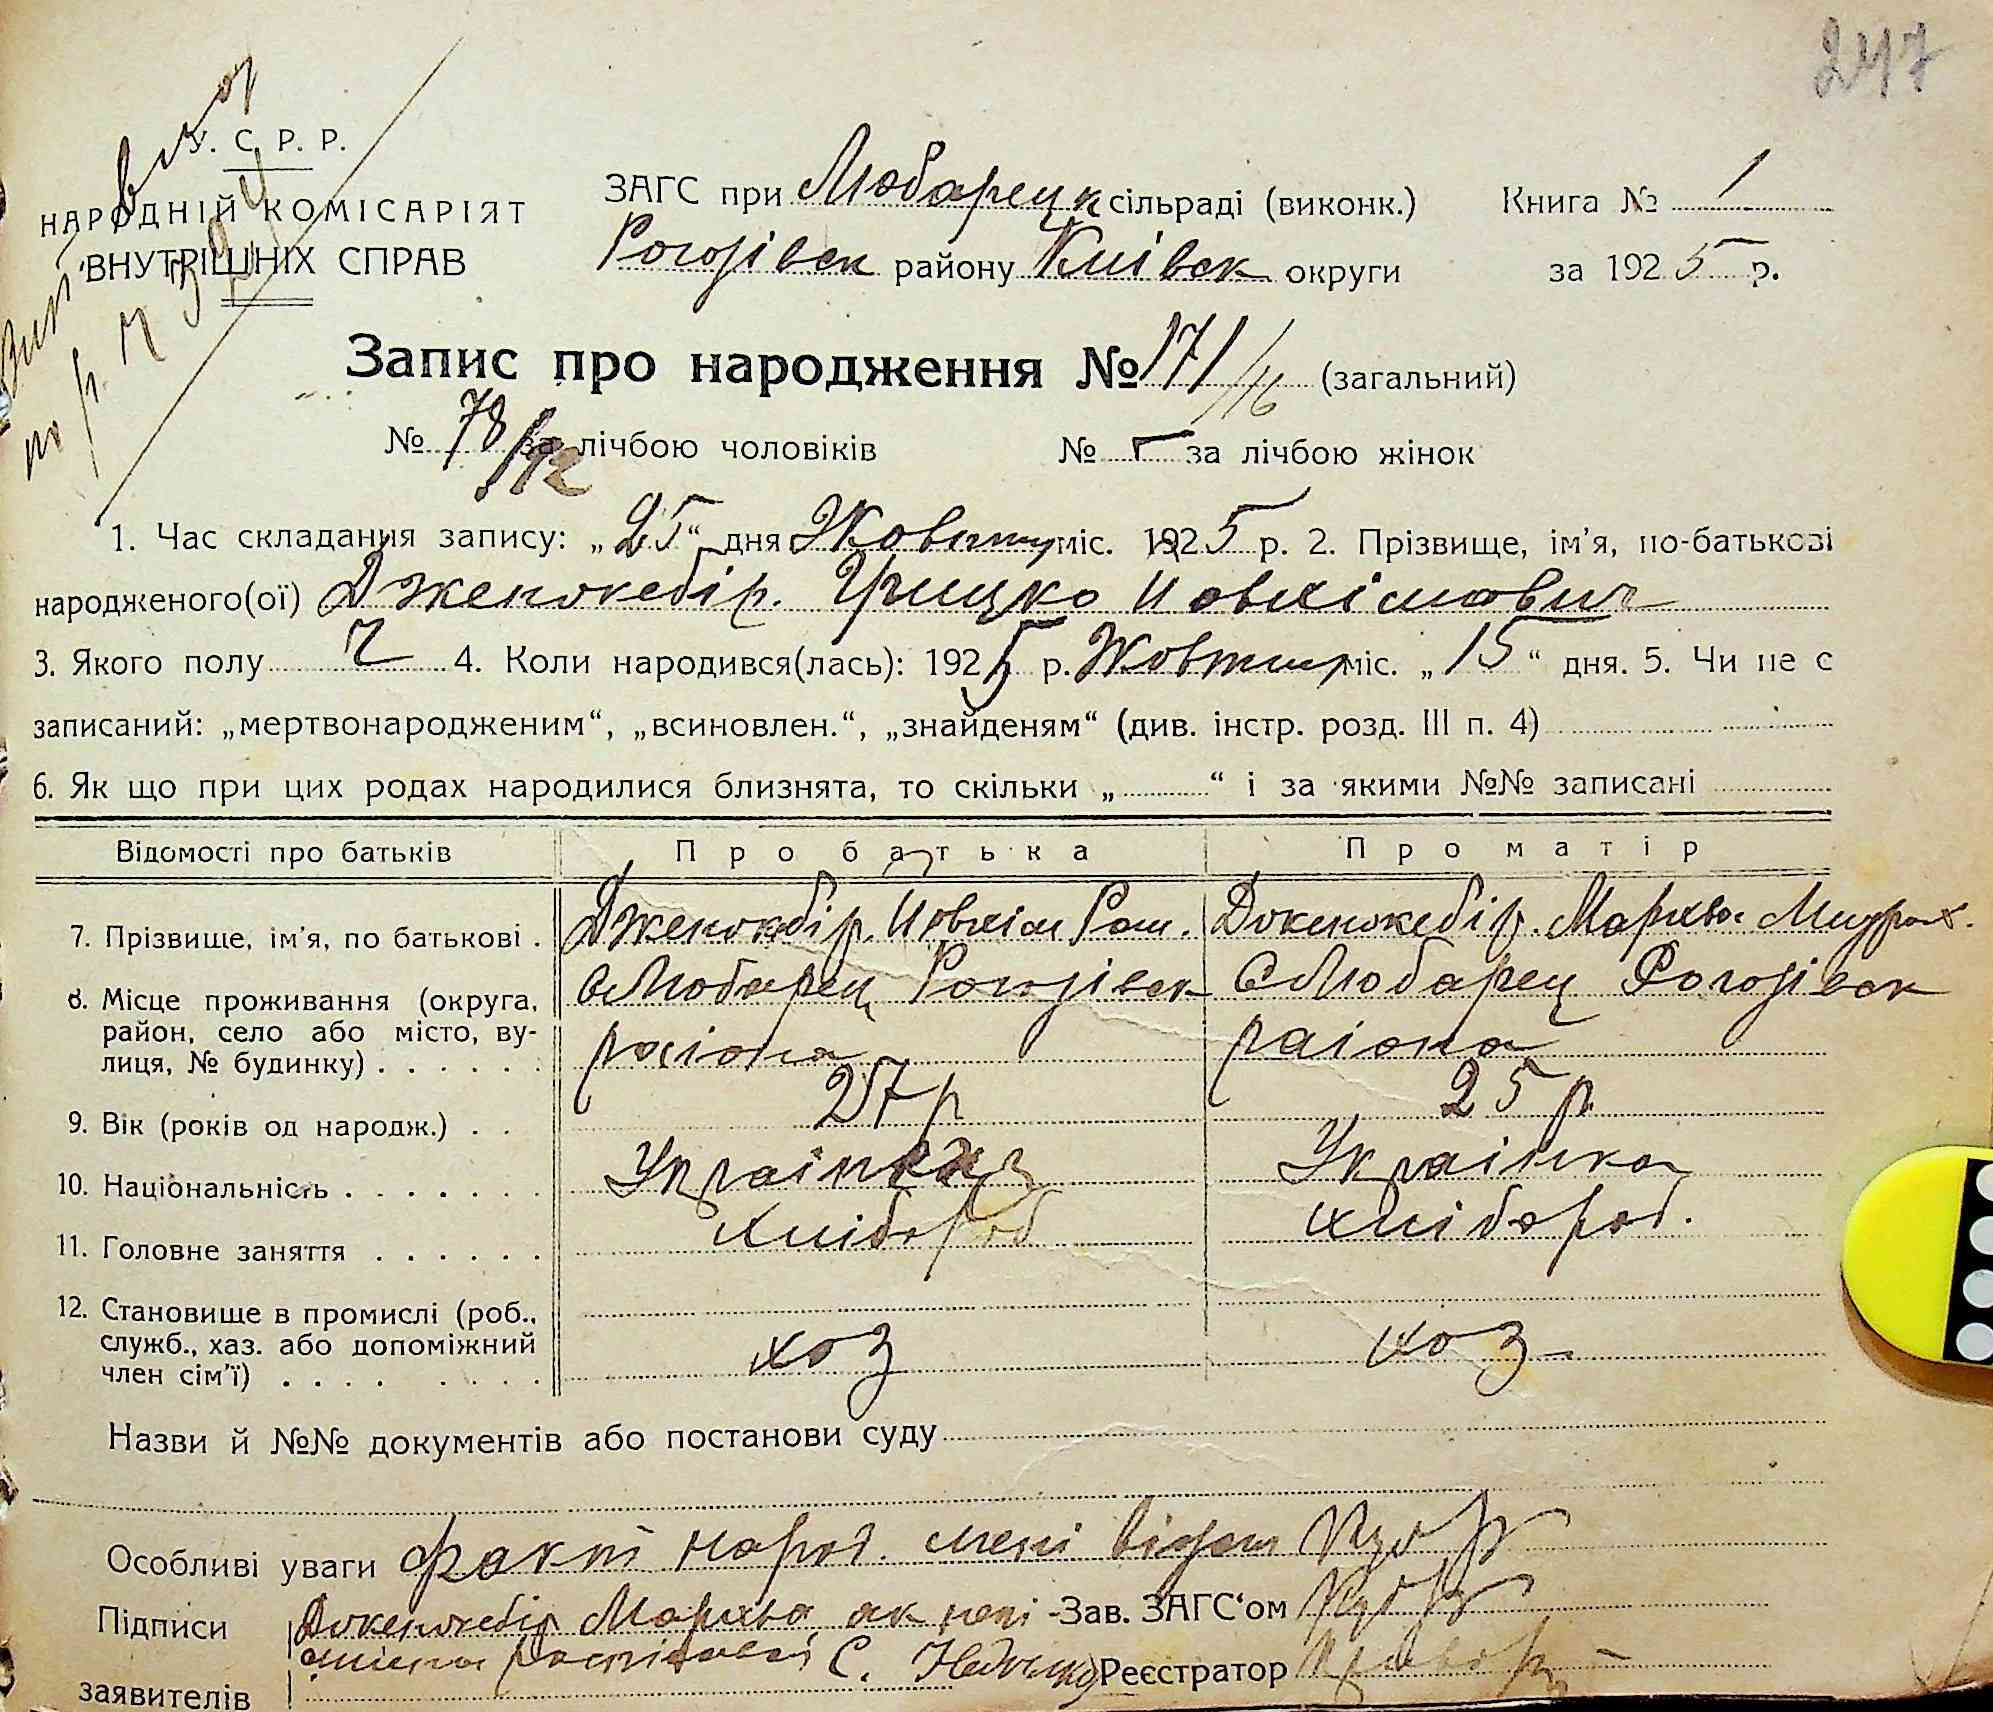 247
У. С. Р. Р.
НАРОДНІЙ КОМІСАРІЯТ
ВНУТРІШНІХ СПРАВ
ЗАГС при Любарецк сільраді (виконк.)
Рогозівск району Київск округи
Книга № 1
за 1925 р.
Запис про народження № 171/16 (загальний)
№ 78/12 за лічбою чоловіків № – за лічбою жінок
1. Час складання запису: „25“ дня Жовтня міс. 1925 р. 2. Прізвище, ім’я, по-батькові
народженого(ої) Дженжебір. Грицко Иовхімович
3. Якого полу ч 4. Коли народився(лась): 1925 р. Жовтня міс. „15“ дня. 5. Чи не є
записаний: „мертвонародженим“, „всиновлен.“, „знайденям“ (див. інстр. розд. III п. 4)
6. Як що при цих родах народилися близнята, то скільки „ “ і за якими №№ записані
Відомості про батьків Про батька Про матір
7. Прізвище, ім’я, по батькові . Дженжебір. Иовхім Ром. Дженжебір. Мархва
8. Місце проживання (округа, с Любарец Рогозівск с Любарец Рогозівск
район, село або місто, ву-
лиця, № будинку) . . . . . . раіона раіона
9. Вік (років од народж.) . . 27 р 25 р.
10. Національність . . . . . . . Украінка
11. Головне заняття . . . . . . хлібороб хлібороб.
12. Становище в промислі (роб.,
служб., хаз. або допоміжний
член сім’ї) . . . . . . . . хоз хоз
Назви й №№ документів або постанови суду
Особливі уваги факт народ. мені відом
Підписи Дженжебір Мархва, а як не
Зав. ЗАГС‘ом
заявителів
Реєстратор